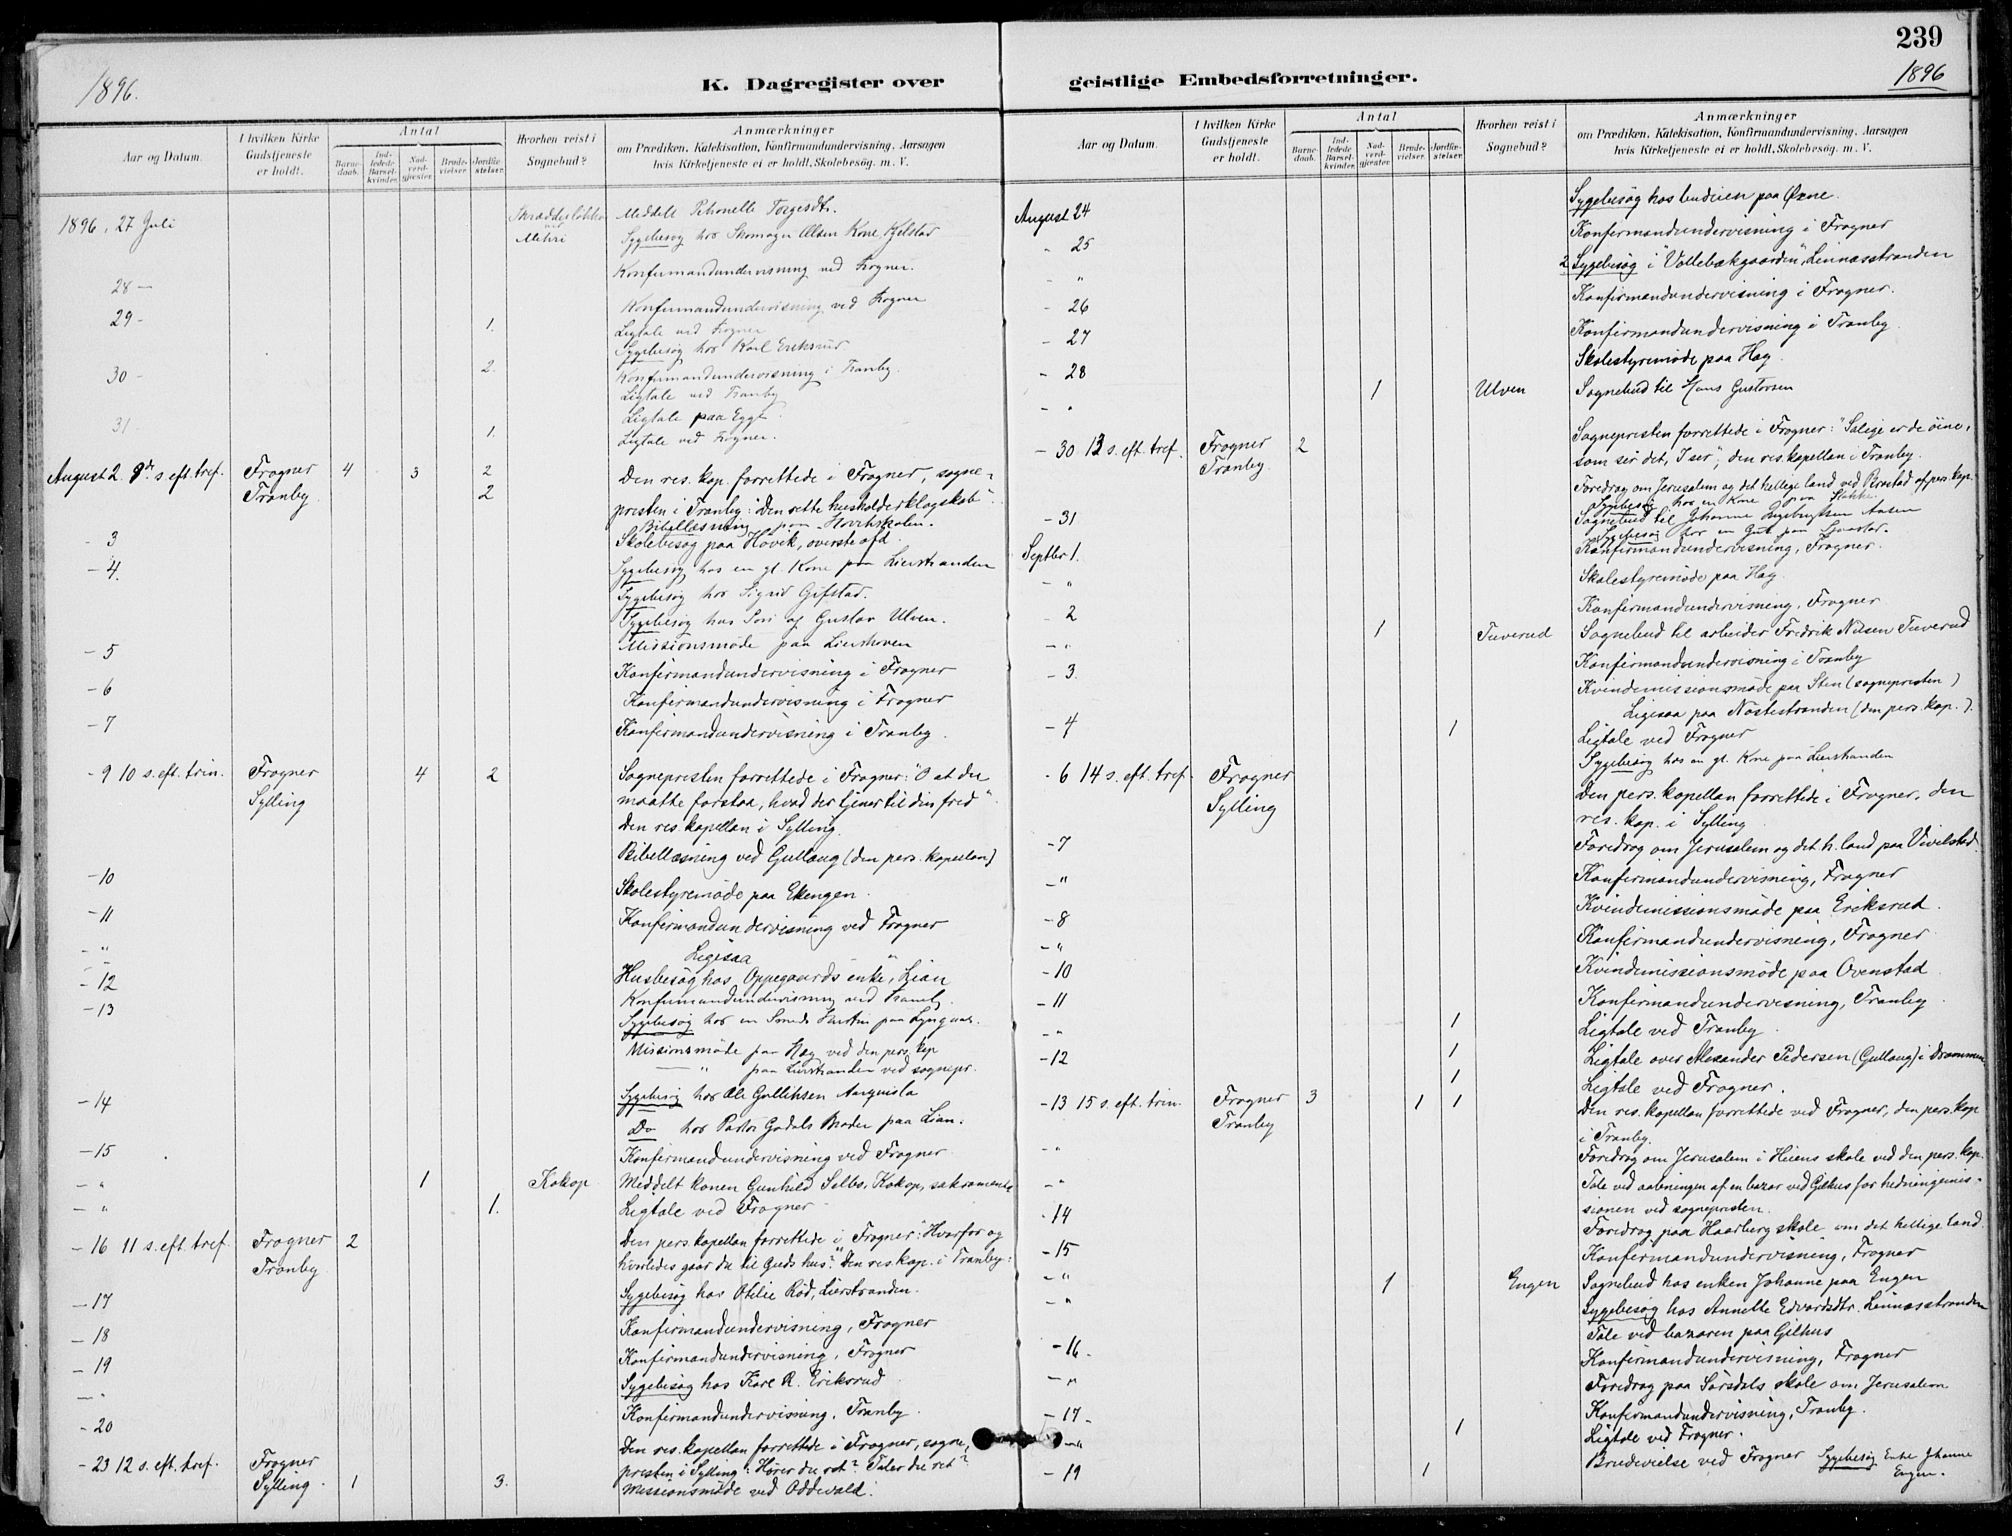 239
1896.
K. Dagregister over
geistlige Embedsforretninger.
1896
Aar og Datum.
I hvilken Kirke Gudstjeneste er holdt.
Antal
Barnedaab.
Indledede Barselkvinder.
Nadverdgjester.
Brudevielser.
Jordfæstelser.
Hvorhen reist i Sognebud?
Anmærkninger
om Prædiken, Katekisation, Konfirmandundervisning, Aarsagen
hvis Kirketjeneste ei er holdt, Skolebesøg. m. V.
1896, 27 Juli Meddelt Torgersdtr.
Sygebesøg hos Skomager Olsen Kone Kjelstad
Konfirmandundervisning ved Frogner.
28 —
Konfirmandundervisning ved Frogner
29 - 1. Ligtale ved Frogner
Sygebesøg hos Karl Eriksrud
30 - 2. Konfirmandundervisning i Tranby.
Ligtale ved Tranby
Ligtale paa Egge.
31 - 1. Ligtale ved Frogner.
August 2. 9de s. eft. tref. Frogner 4 3 2 Den res. kap. forrettede i Frogner, sogne-
Tranby 2 presten i Tranby: "Den rette husholderklogskab".
Bibellæsning paa
- 3 Skolebesøg paa Høvik, øverste afd.
- 4. Sygebesøg hos en gl. Kone paa Lierstranden
Sygebesøg hos Sigrid Gifstad.
Sygebesøg hos af Gustav Ulven.
- 5 Missionsmøde paa Lierskoven
Konfirmandundervisning i Frogner
- 6 Konfirmandundervisning i Frogner
- 7 Konfirmandundervisning i Tranby.
- 9 10 s. eft. trin. Frogner 4 2 Sognepresten forrettede i Frogner: "O at du
Sylling maatte forstaa, hvad der tjener til din fred".
Den res. kapellan i Sylling.
Bibellæsning ved Gullaug (den pers. kapellan)
- 10 Skolestyremøde paa Ekengen.
- 11 Konfirmandundervisning ved Frogner
- " Ligesaa "
- 12 Husbesøg hos Oppegaards enke, Lian
- 13 Konfirmandundervisning ved Tranby.
Sygebesøg hos en Smeds Hustru paa
Missionsmøde paa Hag ved den pers. kap
— " paa Lierstranden ved sognepr.
- 14 Sygebesøg hos Ole Gulliksen
Do hos Pastor Moder paa Lian.
- 15 Konfirmandundervisning ved Frogner
- " 1 Kokop Meddelt konen Gunhild Kokop, sakramentet
- " 1. Ligtale ved Frogner
- 16 11 s. eft. tref. Frogner 2 Den pers. kapellan forrettede i Frogner: "Hvorfor og
Tranby hvorledes gaar du til Guds hus?" Den res. kap. i Tranby.
- 17 Sygebesøg hos Otilie Rød, Lierstranden.
- 18 Konfirmandundervisning, Frogner
- 19 Konfirmandundervisning, Frogner
- " Sygebesøg hos Kare R. Eriksrud
- 20 Konfirmandundervisning, Tranby.
- 23 12 s. eft. tref. Frogner Den res. kapellan forrettede i Frogner, sogne-
Sylling 1 3. presten i Sylling: Hører du ret? Taler du ret?
Missionsmøde ved Oddevald.
Aar og Datum.
I hvilken Kirke Gudstjeneste er holdt.
Antal
Barnedaab.
Indledede Barselkvinder.
Nadverdgjester.
Brudevielser.
Jordfæstelser.
Hvorhen reist i Sognebud?
Anmærkninger
om Prædiken, Katekisation, Konfirmandundervisning, Aarsagen
hvis Kirketjeneste ei er holdt, Skolebesøg. m. V.
August 24 Sygebesøg hos paa Øxne.
- 25 Konfirmandundervisning i Frogner
- " 2 Sygebesøg i "Vollebækgaarden", Linnæsstranden
- 26 Konfirmandundervisning i Frogner.
- 27 Konfirmandundervisning i Tranby.
- 28 Skolestyremøde paa Hag.
- " 1 Ulven Sognebud til Hans Gustavsen
- 30 13 s. eft. tref. Frogner 2 Sognepresten forrettede i Frogner: "Salige er de øine,
Tranby som ser det, I ser"; den res. kapellan i Tranby.
Foredrag om Jerusalem og det hellige land ved af pers. kap.
Sygebesøg hos en Kone paa
- 31 Sognebud til Johanne Aasen
Sygebesøg hos en Gut paa
Septbr 1. Konfirmandundervisning, Frogner.
- " Skolestyremøde paa Hag
2 Konfirmandundervisning, Frogner
- " 1 Tuverud Sognebud til arbeider Fredrik Nilsen Tuverud
- 3. Konfirmandundervisning i Tranby
Kvindemissionsmøde paa Sten (sognepresten)
Ligesaa paa Nøstestranden (den pers. kap.).
- 4 1 Ligtale ved Frogner
Sygebesøg hos en gl. Kone paa Lierstranden
- 6 14 s. eft. tref. Frogner Den pers. kapellan forrettede i Frogner, den
Sylling res. kap. i Sylling
- 7 Foredrag om Jerusalem og det h. land paa Vivelstad.
- " Konfirmandundervisning, Frogner
- 8 Kvindemissionsmøde paa Eriksrud.
- " Konfirmandundervisning, Frogner
- 10 Kvindemissionsmøde paa Ovenstad
- 11 Konfirmandundervisning, Tranby.
- " 1 Ligtale ved Tranby.
- 12 1 Ligtale over Alexander Pedersen (Gullaug) i Drammen
1 Ligtale ved Frogner.
- 13 15 s. eft. trin. Frogner 3 1 1 Den res. kapellan forrettede ved Frogner, den pers. kap
Tranby i Tranby.
- " Foredrag om Jerusalem i Heiens skole ved den pers. kap.
- " Tale ved aabningen af en bazar ved Gilhus for hedningemis-
sionen ved sognepresten.
- 14 Foredrag paa Haarberg skole om det hellige land.
- 15 Konfirmandundervisning, Frogner
- " 1 Engen Sognebud hos enken Johanne paa Engen
- " Sygebesøg hos Annette Edvardsdtr. Linnæsstranden
Tale ved bazaren paa Gilhus
- 16 - Konfirmandundervisning, Frogner
- " Foredrag paa Sørsdals skole om Jerusalem
- 17 - Konfirmandundervisning, Tranby.
- " 1 Ligtale ved Frogner.
- 19 1 Brudevielse ved Frogner Sygebesøg Enke Johanne
Engen.